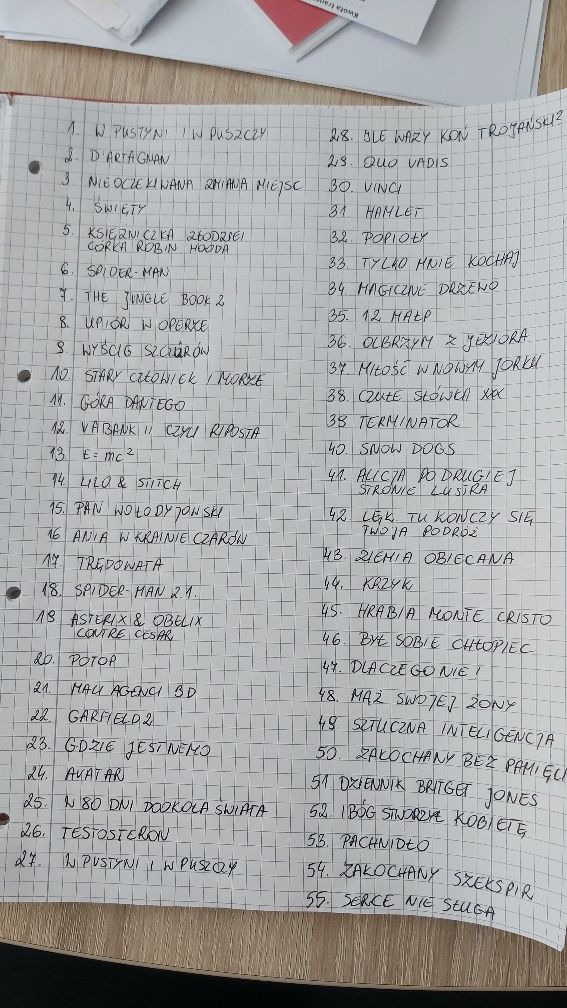 Kwota
1. W PUSTYNI I W PUSZCZY
2. D'ARTAGNAN
3. NIEOCZEKIWANA ZMIANA MIEJSC
4. ŚWIĘTY
5. KSIĘŻNICZKA ZŁODZIEI
CÓRKA ROBIN HOODA
6. SPIDER-MAN
7. THE JUNGLE BOOK 2
8. UPIÓR W OPERZE
9. WYŚCIG SZCZURÓW
10. STARY CZŁOWIEK I MORZE
11. GÓRA DANTEGO
12. VABANK II CZYLI RIPOSTA
13. E=mc²
14. LILO & STITCH
15. PAN WOŁODYJOWSKI
16. ANIA W KRAINIE CZARÓW
17. TRĘDOWATA
18. SPIDER-MAN 2.1.
19 ASTERIX & OBELIX
CONTRE CESAR
20. POTOP
21. MALI AGENCI 3D
22. GARFIELD 2
23. GDZIE JEST NEMO
24. AVATAR
25. W 80 DNI DOOKOŁA ŚWIATA
26. TESTOSTERON
27. W PUSTYNI I W PUSZCZY
28. ILE WAŻY KOŃ TROJAŃSKI?
29. QUO VADIS
30. VINCI
31. HAMLET
32. POPIOŁY
33. TYLKO MNIE KOCHAJ
34. MAGICZNE DRZEWO
35. 12 MAŁP
36. OLBRZYM Z JEZIORA
37. MIŁOŚĆ W NOWYM JORKU
38. CZUŁE SŁÓWKA XXX
39. TERMINATOR
40. SNOW DOGS
41. ALICJA PO DRUGIEJ
STRONIE LUSTRA
42. LĘK. TU KOŃCZY SIĘ
TWOJA PODRÓŻ
43. ZIEMIA OBIECANA
44. KRZYK
45. HRABIA MONTE CRISTO
46. BYŁ SOBIE CHŁOPIEC
47. DLACZEGO NIE!
48. MĄŻ SWOJEJ ŻONY
49 SZTUCZNA INTELIGENCJA
50. ZAKOCHANY BEZ PAMIĘCI
51 DZIENNIK BRITGET JONES
52. I BÓG STWORZYŁ KOBIETĘ
53. PACHNIDŁO
54. ZAKOCHANY SZEKSPIR
55. SERCE NIE SŁUGA